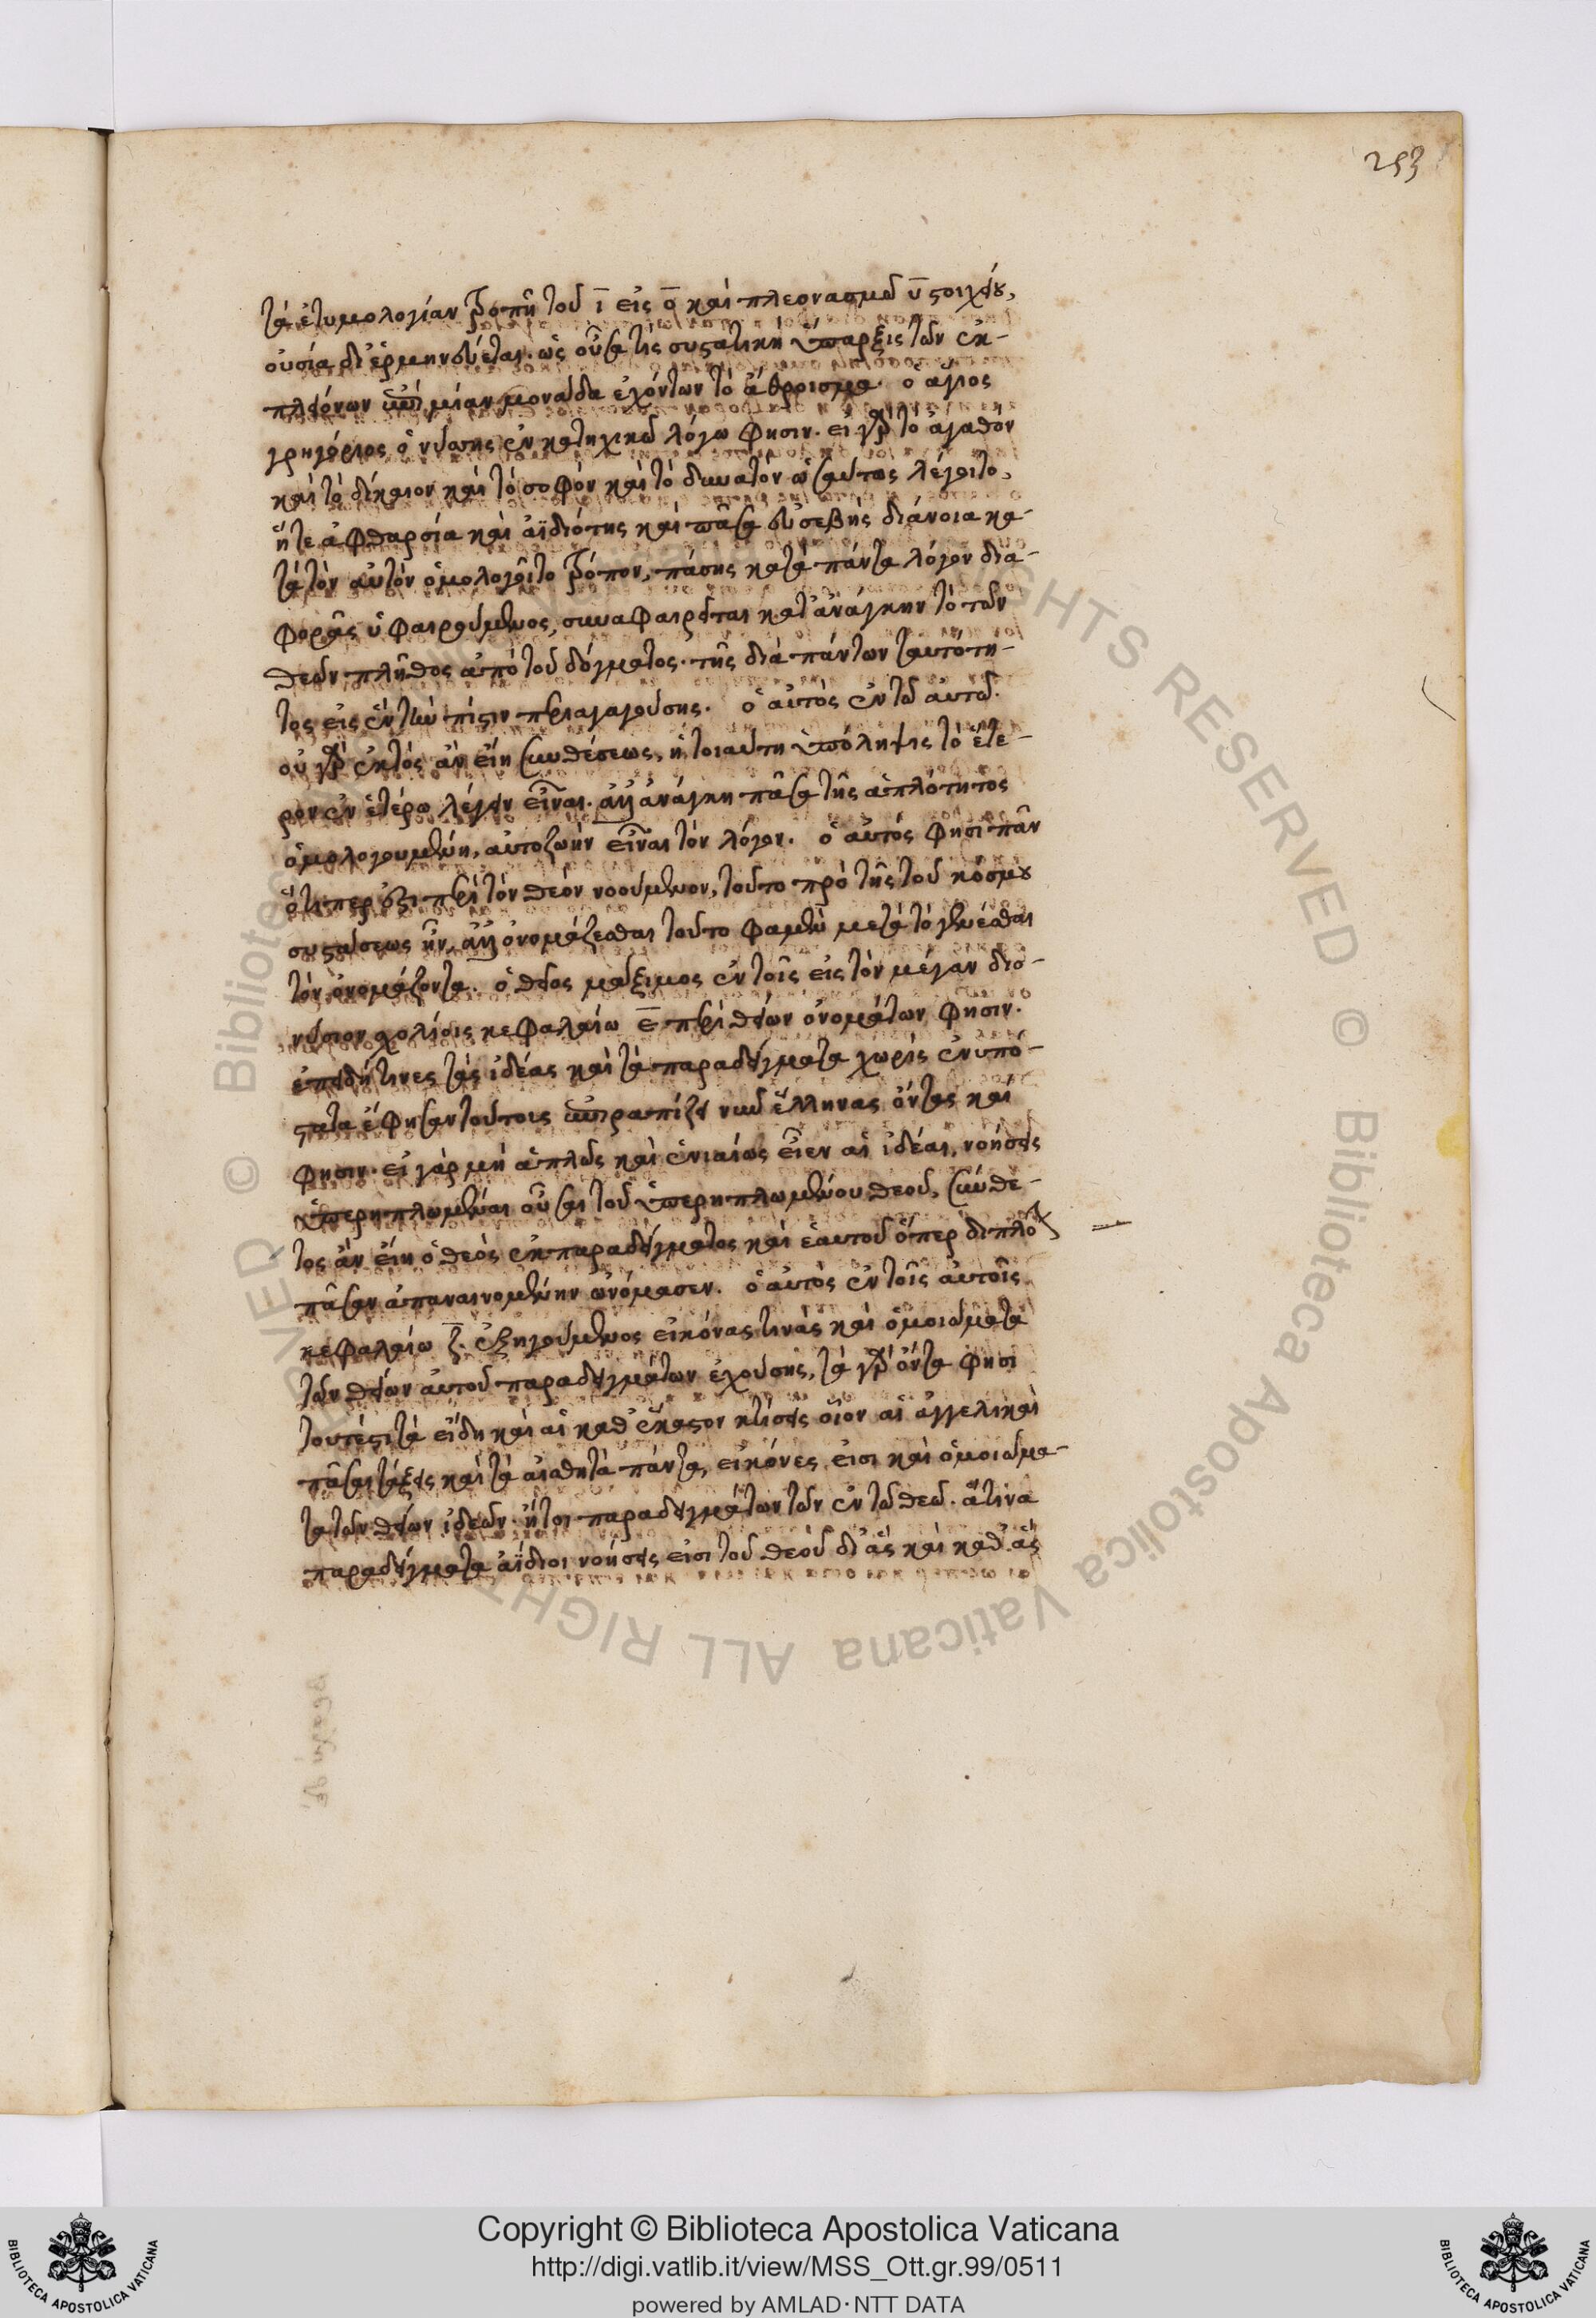 253
τὰ ἐτυμολογίαν τροπῆ τοῦ ι εἰς ο καὶ πλεονασμῶ υ στοιχείου,
οὐσία διερμηνεύεται. ὡς οὖσά τις συστατικὴ ὕπαρξις τῶν ἐκ-
πλειόνων μίαν μονάδα ἐχόντων τὸ ἄθροισμα. ὁ ἅγιος
γρηγόριος ὁ νύσσης ἐν κατηχικῶ λόγω φησιν. εἰ γὰρ τὸ ἀγαθὸν
καὶ τὸ δίκαιον καὶ τὸ σοφὸν καὶ τὸ δυνατὸν ὡσαύτως λέγοιτο,
ἥτε ἀφθαρσία καὶ ἀϊδιότης καὶ πᾶσα εὐσεβὴς διάνοια κα-
τὰ τὸν αὐτὸν ὁμολογοῖτο τρόπον, πάσης κατὰ πάντα λόγον δια-
φορᾶς ὑφαιρουμένος, συναφαιρεῖται κατ' ἀνάγκην τὸ τῶν
θεῶν πλῆθος ἀπὸ τοῦ δόγματος. τῆς διὰ πάντων ταυτότη-
τος εἰς ἓν τὴν πίστιν περιαγαγούσης. ὁ αὐτὸς ἐν τῶ αὐτῶ.
οὐ γὰρ ἐκτὸς ἂν εἴη συνθέσεως, ἡ τοιαύτη ὑπόληψις τὸ ἕτε-
ρον ἐν ἑτέρω λέγειν εἶναι. ἀλλ' ἀνάγκη πᾶσα τῆς ἁπλότητος
ὁμολογουμένη, αὐτοζωὴν εἶναι τὸν λόγον. ὁ αὐτὸς φησι πᾶν
ὅτι περ ἐστι περὶ τὸν θεὸν νοούμενον, τοῦτο πρὸ τῆς τοῦ κόσμου
συστάσεως ἦν, ἀλλ' ὀνομάζεσθαι τοῦτο φαμὲν μετὰ τὸ γενέσθαι
τὸν ὀνομάζοντα. ὁ θεῖος μάξιμος ἐν τοῖς εἰς τὸν μέγαν διο-
νύσιον σχολίοις κεφαλαίω ε περὶ θείων ὀνομάτων φησιν.
ἐπειδή τινες τὰς ἰδέας καὶ τὰ παραδείγματα χωρὶς ἐνυπό-
στατα ἔφησαν τούτοις ραπίζει νῦν ἕλληνας ὄντας καὶ
φησιν. εἰ γὰρ μὴ ἁπλῶς καὶ ἑνιαίως εἶεν αἱ ἰδέαι, νοήσεις
ὑπερηπλωμέναι οὖσαι τοῦ ὑπερηπλωμένου θεοῦ, σύνθε-
τος ἂν εἴη ὁ θεὸς ἐκ παραδείγματος καὶ ἑαυτοῦ ὅπερ διπλό
πᾶσαν ἀπαναινομένην ὠνόμασεν. ὁ αὐτὸς ἐν τοῖς αὐτοῖς
κεφαλαίω ζ. ἐξηγούμενος εἰκόνας τινὰς καὶ ὁμοιώματα
τῶν θείων αὐτοῦ παραδειγμάτων ἐχούσης, τὰ γὰρ ὄντα φησὶ
τουτέστι τὰ εἴδη καὶ αἱ καθ' ἕκαστον κτίσεις οἷον αἱ ἀγγελικαὶ
πᾶσαι τάξεις καὶ τὰ αἰσθητὰ πάντα, εἰκόνες εἰσι καὶ ὁμοιώμα-
τα τῶν θείων ἰδεῶν ἤτοι παραδειγμάτων τῶν ἐν τῶ θεῶ. ἅτινα
παραδείγματα ἀΐδιοι νοήσεις εἰσι τοῦ θεοῦ δι' ἃς καὶ καθ' ἃς
© Biblioteca Apostolica Vaticana ALL RIGHTS RESERVED
Copyright © Biblioteca Apostolica Vaticana
http://digi.vatlib.it/view/MSS_Ott.gr.99/0511
powered by AMLAD·NTT DATA
BIBLIOTECA APOSTOLICA VATICANA
BIBLIOTECA APOSTOLICA VATICANA